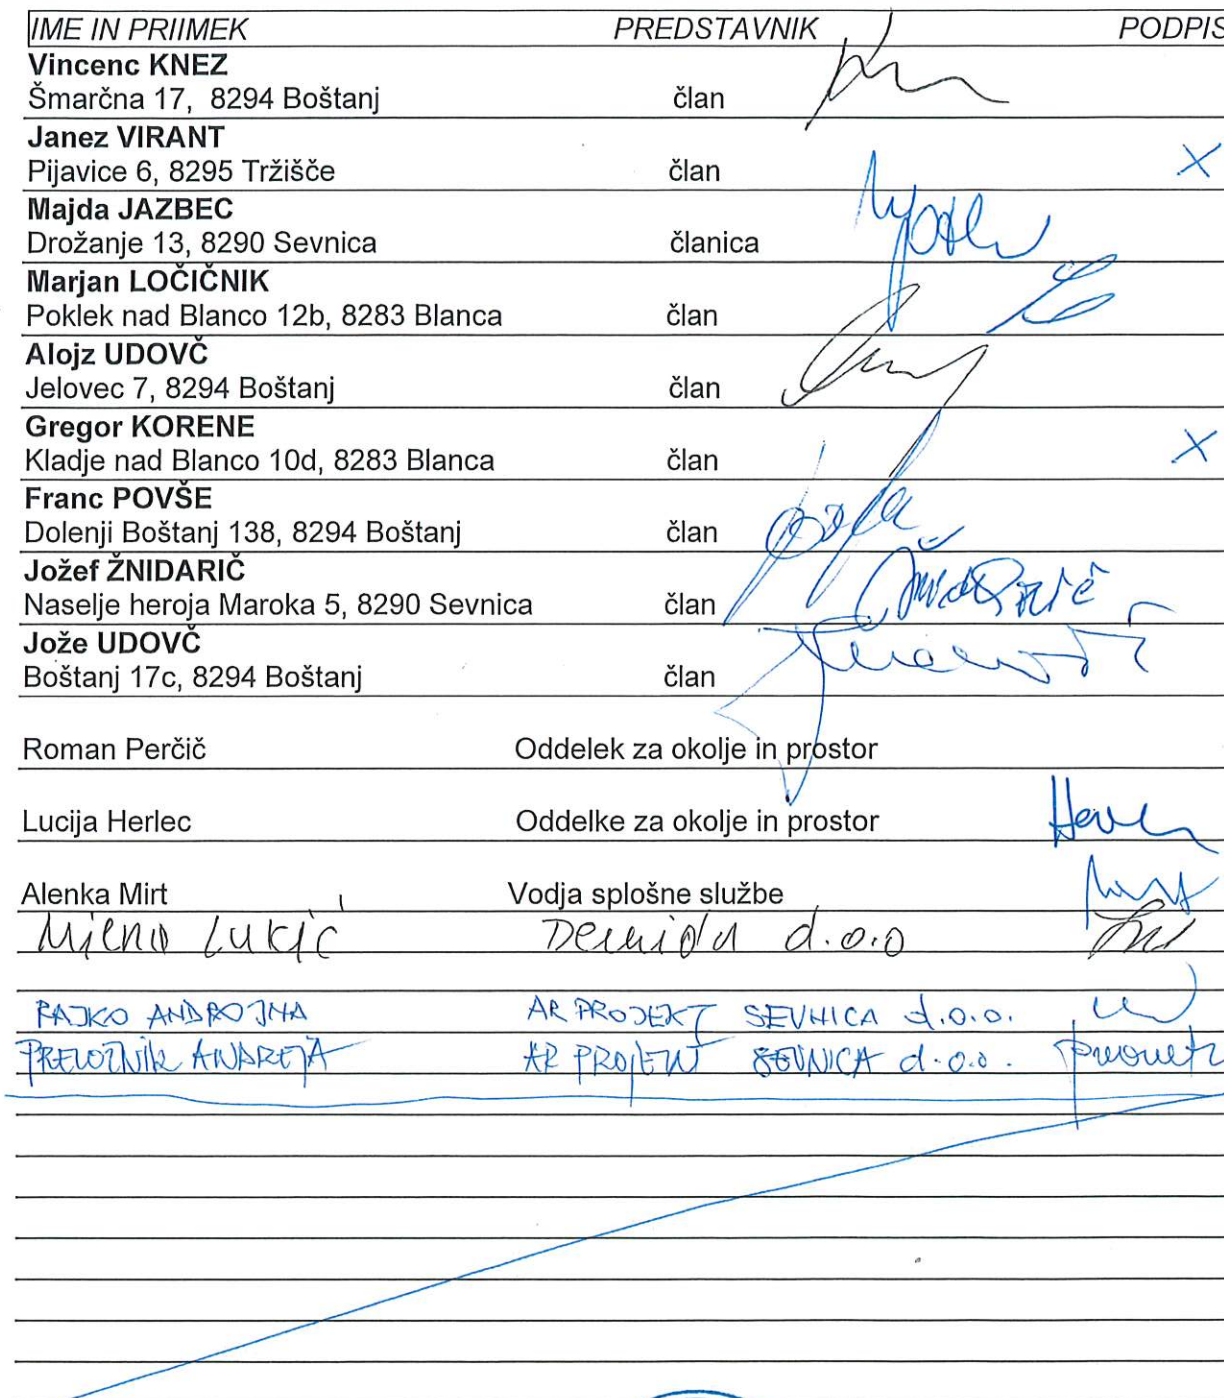 IME IN PRIIMEK PREDSTAVNIK PODPIS
Vincenc KNEZ
Šmarčna 17, 8294 Boštanj član
Janez VIRANT
Pijavice 6, 8295 Tržišče član X
Majda JAZBEC
Drožanje 13, 8290 Sevnica članica
Marjan LOČIČNIK
Poklek nad Blanco 12b, 8283 Blanca član
Alojz UDOVČ
Jelovec 7, 8294 Boštanj član
Gregor KORENE
Kladje nad Blanco 10d, 8283 Blanca član X
Franc POVŠE
Dolenji Boštanj 138, 8294 Boštanj član
Jožef ŽNIDARIČ
Naselje heroja Maroka 5, 8290 Sevnica član Žnidaršič
Jože UDOVČ
Boštanj 17c, 8294 Boštanj član
Roman Perčič Oddelek za okolje in prostor
Lucija Herlec Oddelke za okolje in prostor
Alenka Mirt Vodja splošne službe
Lukić d.o.o
RAJKO ANDROJNA AR PROJEKT SEVNICA d.o.o.
PRELOŽNIK ANDREJA AR PROJEKT SEVNICA d.o.o.